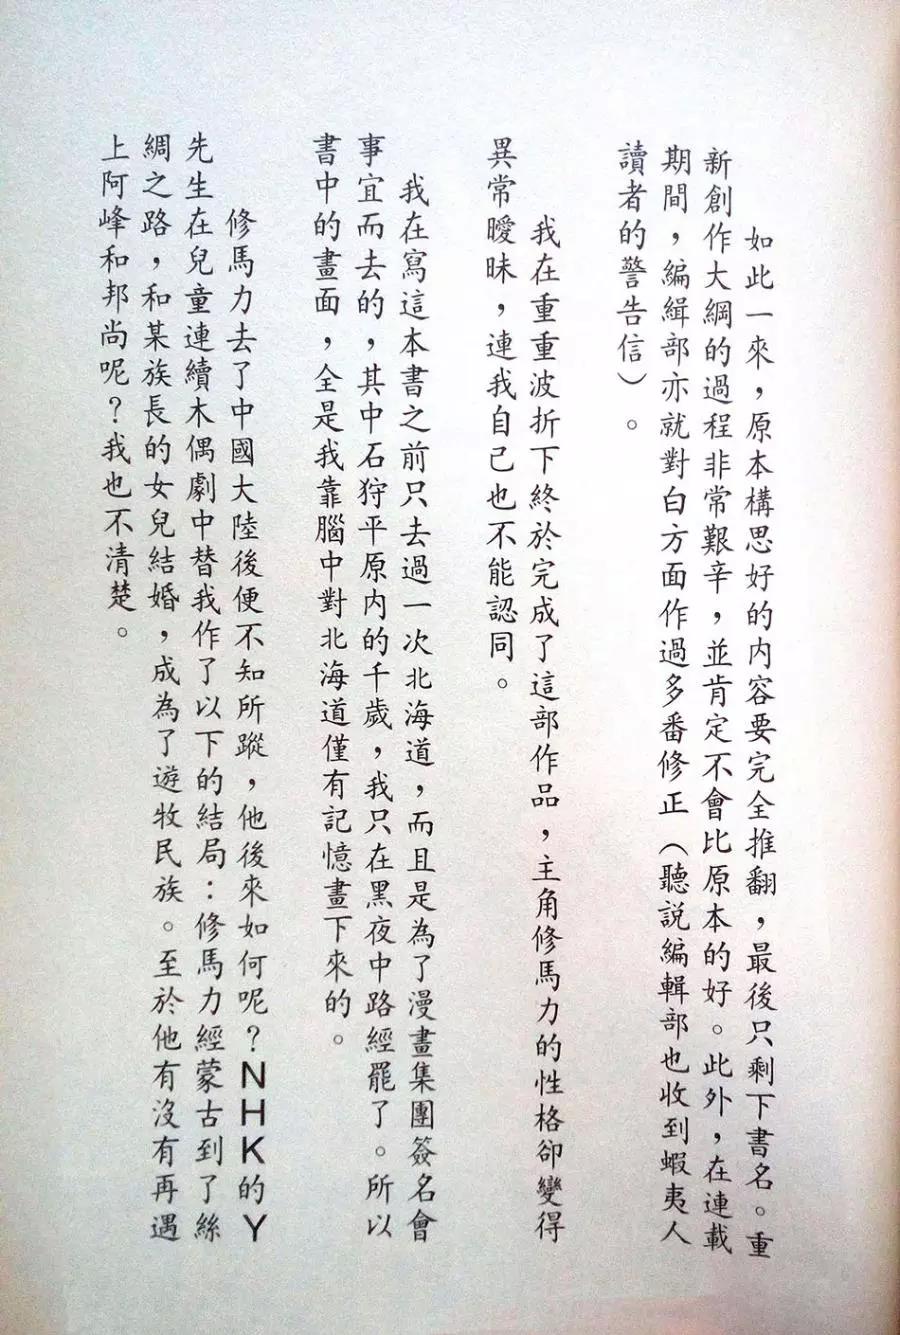 如此一來，原本構思好的内容要完全推翻，最後只剩下書名。重
新創作大綱的過程非常艱辛，並肯定不會比原本的好。此外，在連載
期間，編緝部亦就對白方面作過多番修正（聽說編輯部也收到蝦夷人
讀者的警告信）。
我在重重波折下終於完成了這部作品，主角修馬力的性格卻變得
異常曖昧，連我自己也不能認同。
我在寫這本書之前只去過一次北海道，而且是為了漫畫集團簽名會
事宜而去的，其中石狩平原内的千歲，我只在黑夜中路經罷了。所以
書中的畫面，全是我靠腦中對北海道僅有記憶畫下來的。
修馬力去了中國大陸後便不知所蹤，他後來如何呢？NHK的Y
先生在兒童連續木偶劇中替我作了以下的結局：修馬力經蒙古到了絲
綢之路，和某族長的女兒結婚，成為了遊牧民族。至於他有沒有再遇
上阿峰和邦尚呢？我也不清楚。